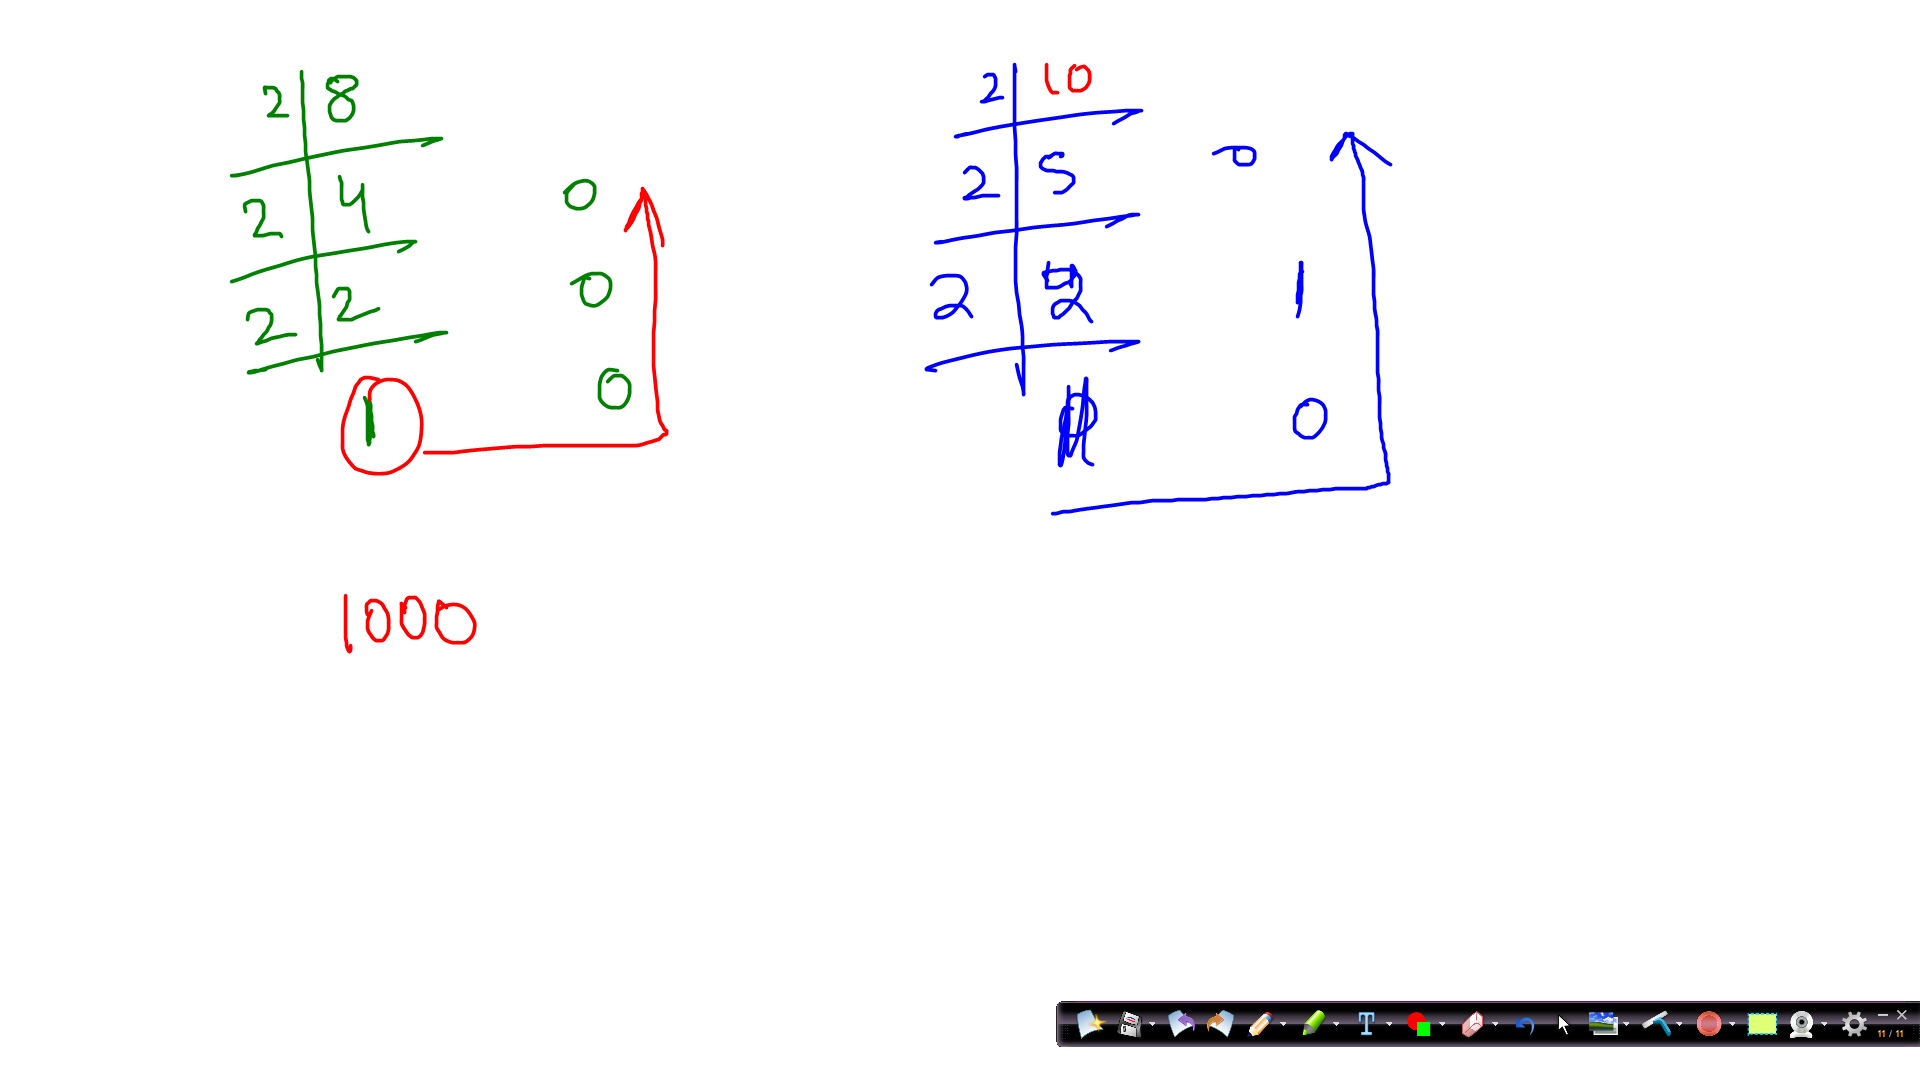 2 8
2 4 0
2 2 0
1 0
1000
2 10
2 5 0
2 2 1
0
T
11 / 11